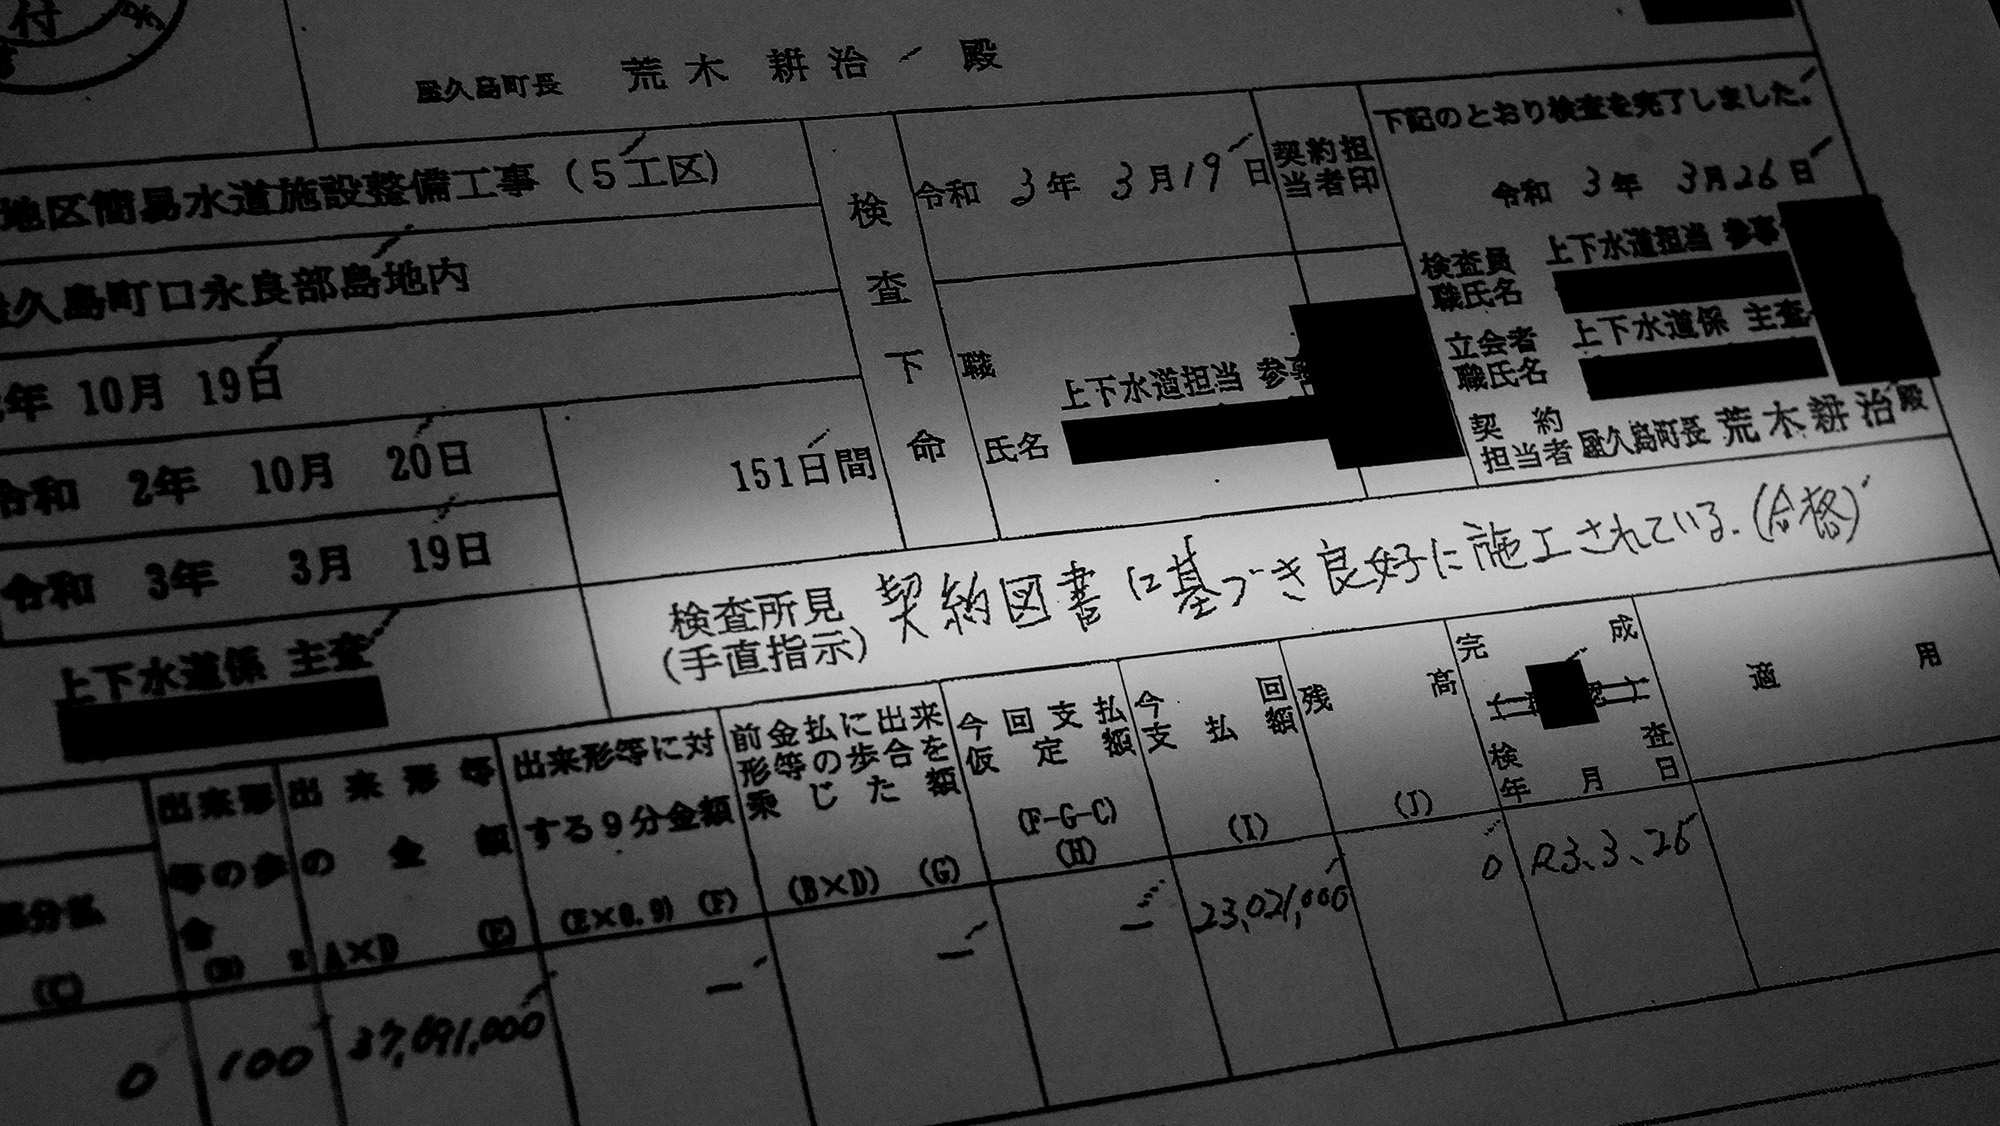 付
屋久島町長 荒木 耕治 殿
地区簡易水道施設整備工事（5工区）
久島町口永良部島地内
年 10月 19日
令和 2年 10月 20日
151日間
令和 3年 3月 19日
上下水道係 主査
検査下命
令和 3年 3月19日
契約担当者印
職
上下水道担当 参事
氏名
下記のとおり検査を完了しました。
令和 3年 3月26日
検査員職氏名
上下水道担当 参事
立会者職氏名
上下水道係 主査
契約担当者 屋久島町長 荒木耕治殿
検査所見 契約図書に基づき良好に施工されている.(合格)
(手直指示)
部分払
(C)
出来形等の歩合
(D) %
出来形等の金額
A×D (E)
出来形等に対する9分金額
(E×0.9) (F)
前金払に出来形等の歩合を乗じた額
(B×D) (G)
今回支払仮定額
(F-G-C)
(H)
今回支払額
(I)
残高
(J)
完成
検査年月日
適用
0 100 37,691,000 — — — 23,021,000 0 R3.3.26